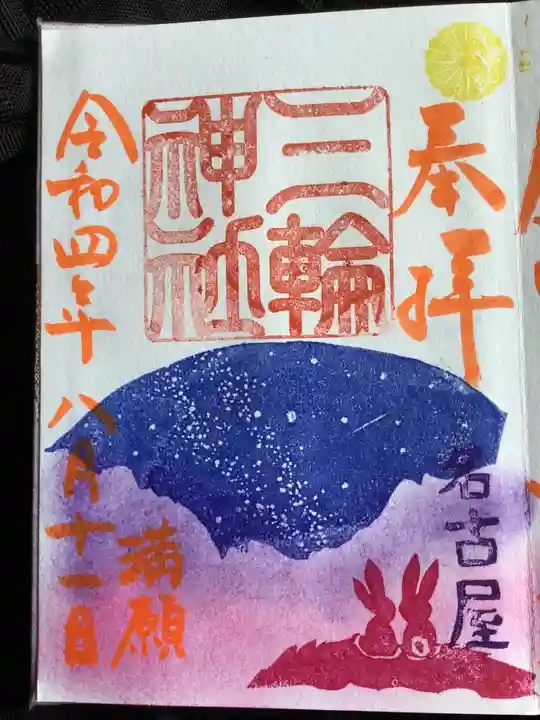 奉拝
名古屋
三輪
神社
満願
令和四年八月十一日